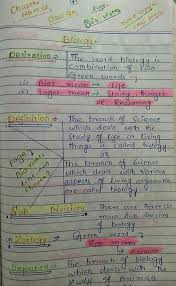 Chapter
Biology
Derivation
The word biology is
combination of two
Greek words;
i) Bios mean → Life
ii) Logos mean → Study, thought
or Reasoning
Definition
The branch of Science
which deals with the
Study of life or living
things is called biology
OR
The branch of Science
which deals with various
aspects of living organisms
are called biology
Sub Division:
There are three (3)
main sub division
of biology
Zoology
Greek word
Zoo means
Animal
Definition
The branch of biology
which deals with the
study of Animal